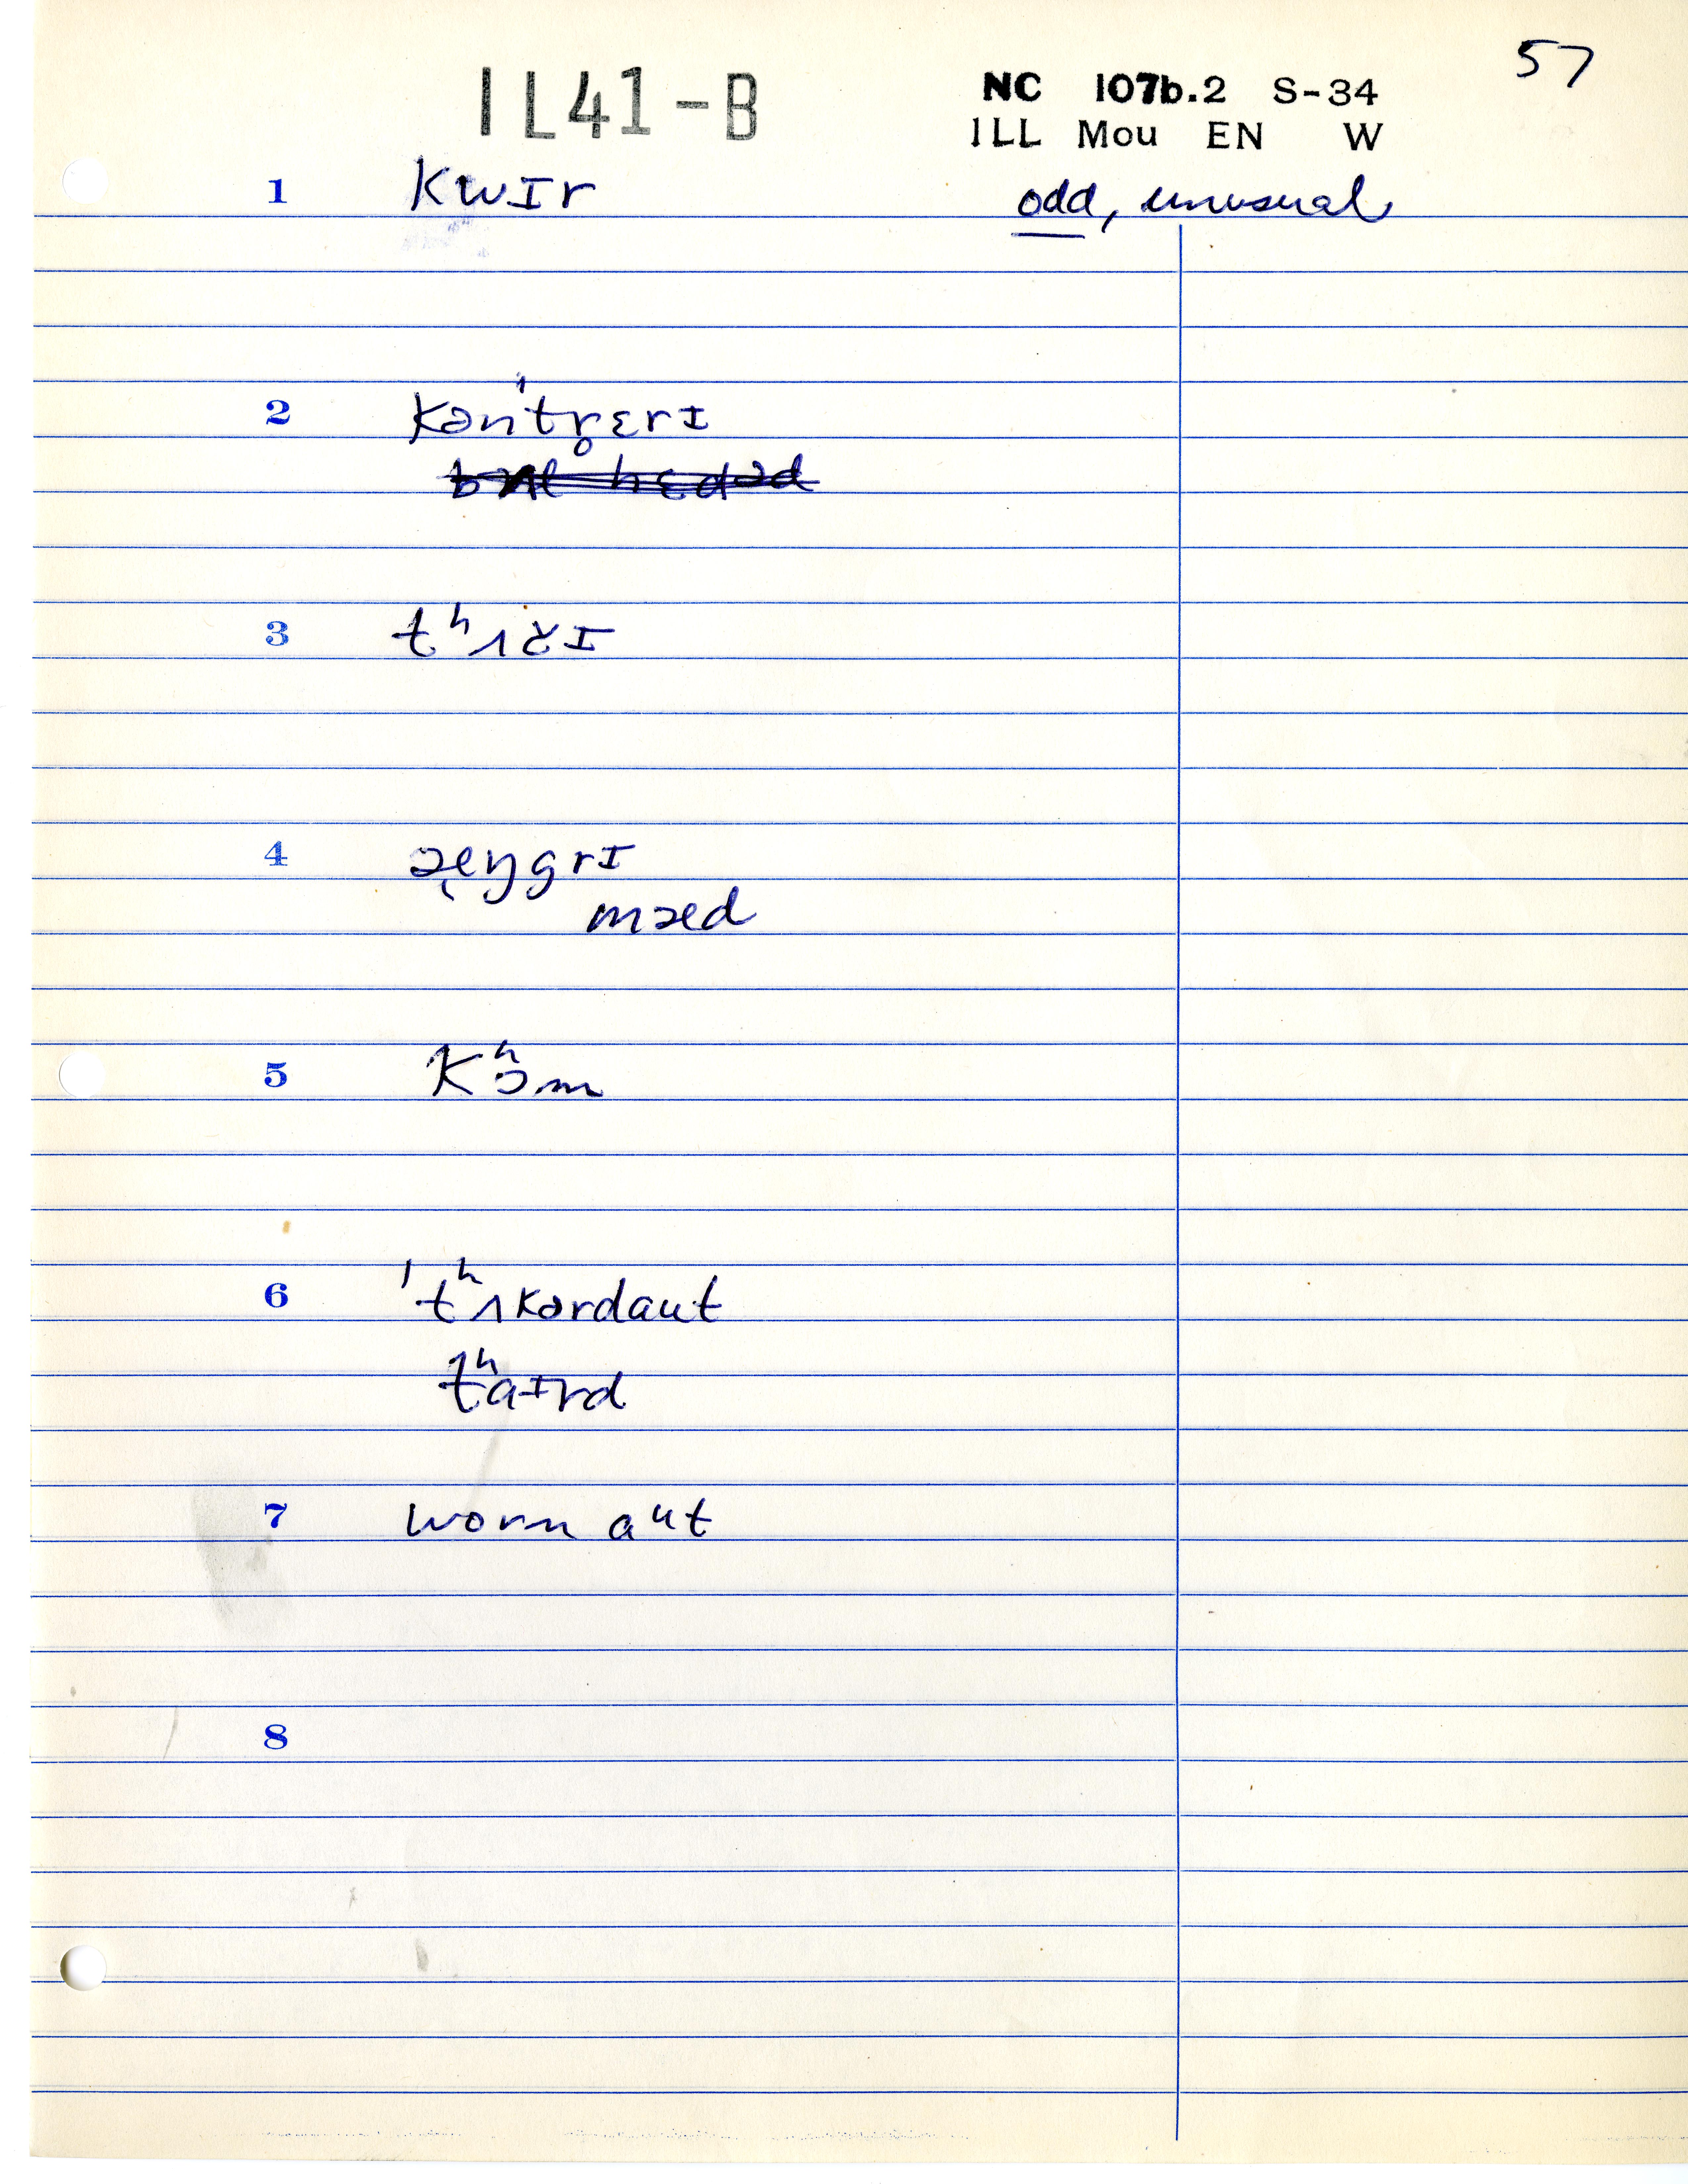 57
IL41-B
NC 107b.2 S-34
ILL Mou EN W
1 kwɪr odd, unusual
2 kən'tr̥ɛrɪ
3 tʰʌčɪ
4 æŋgrɪ
mæd
5 kʰɔm
6 'tʰʌkərdaut
tʰaɪrd
7 worn aut
8